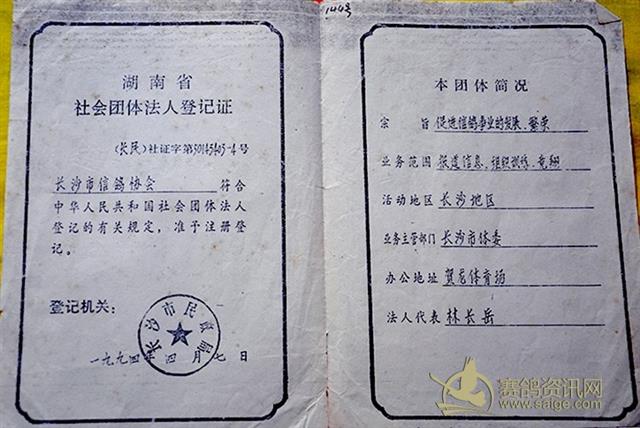 144号
湖南省
社会团体法人登记证
(长民)社证字第50145405-4号
长沙市信鸽协会 符合
中华人民共和国社会团体法人
登记的有关规定，准予注册登
记。
登记机关：
长沙市民政局
一九九四年四月七日
本团体简况
宗旨 促进信鸽事业的发展、繁荣
业务范围 报道信息、组织训练、竞翔
活动地区 长沙地区
业务主管部门 长沙市体委
办公地址 贺龙体育场
法人代表 林长岳
赛鸽资讯网
www.saige.com